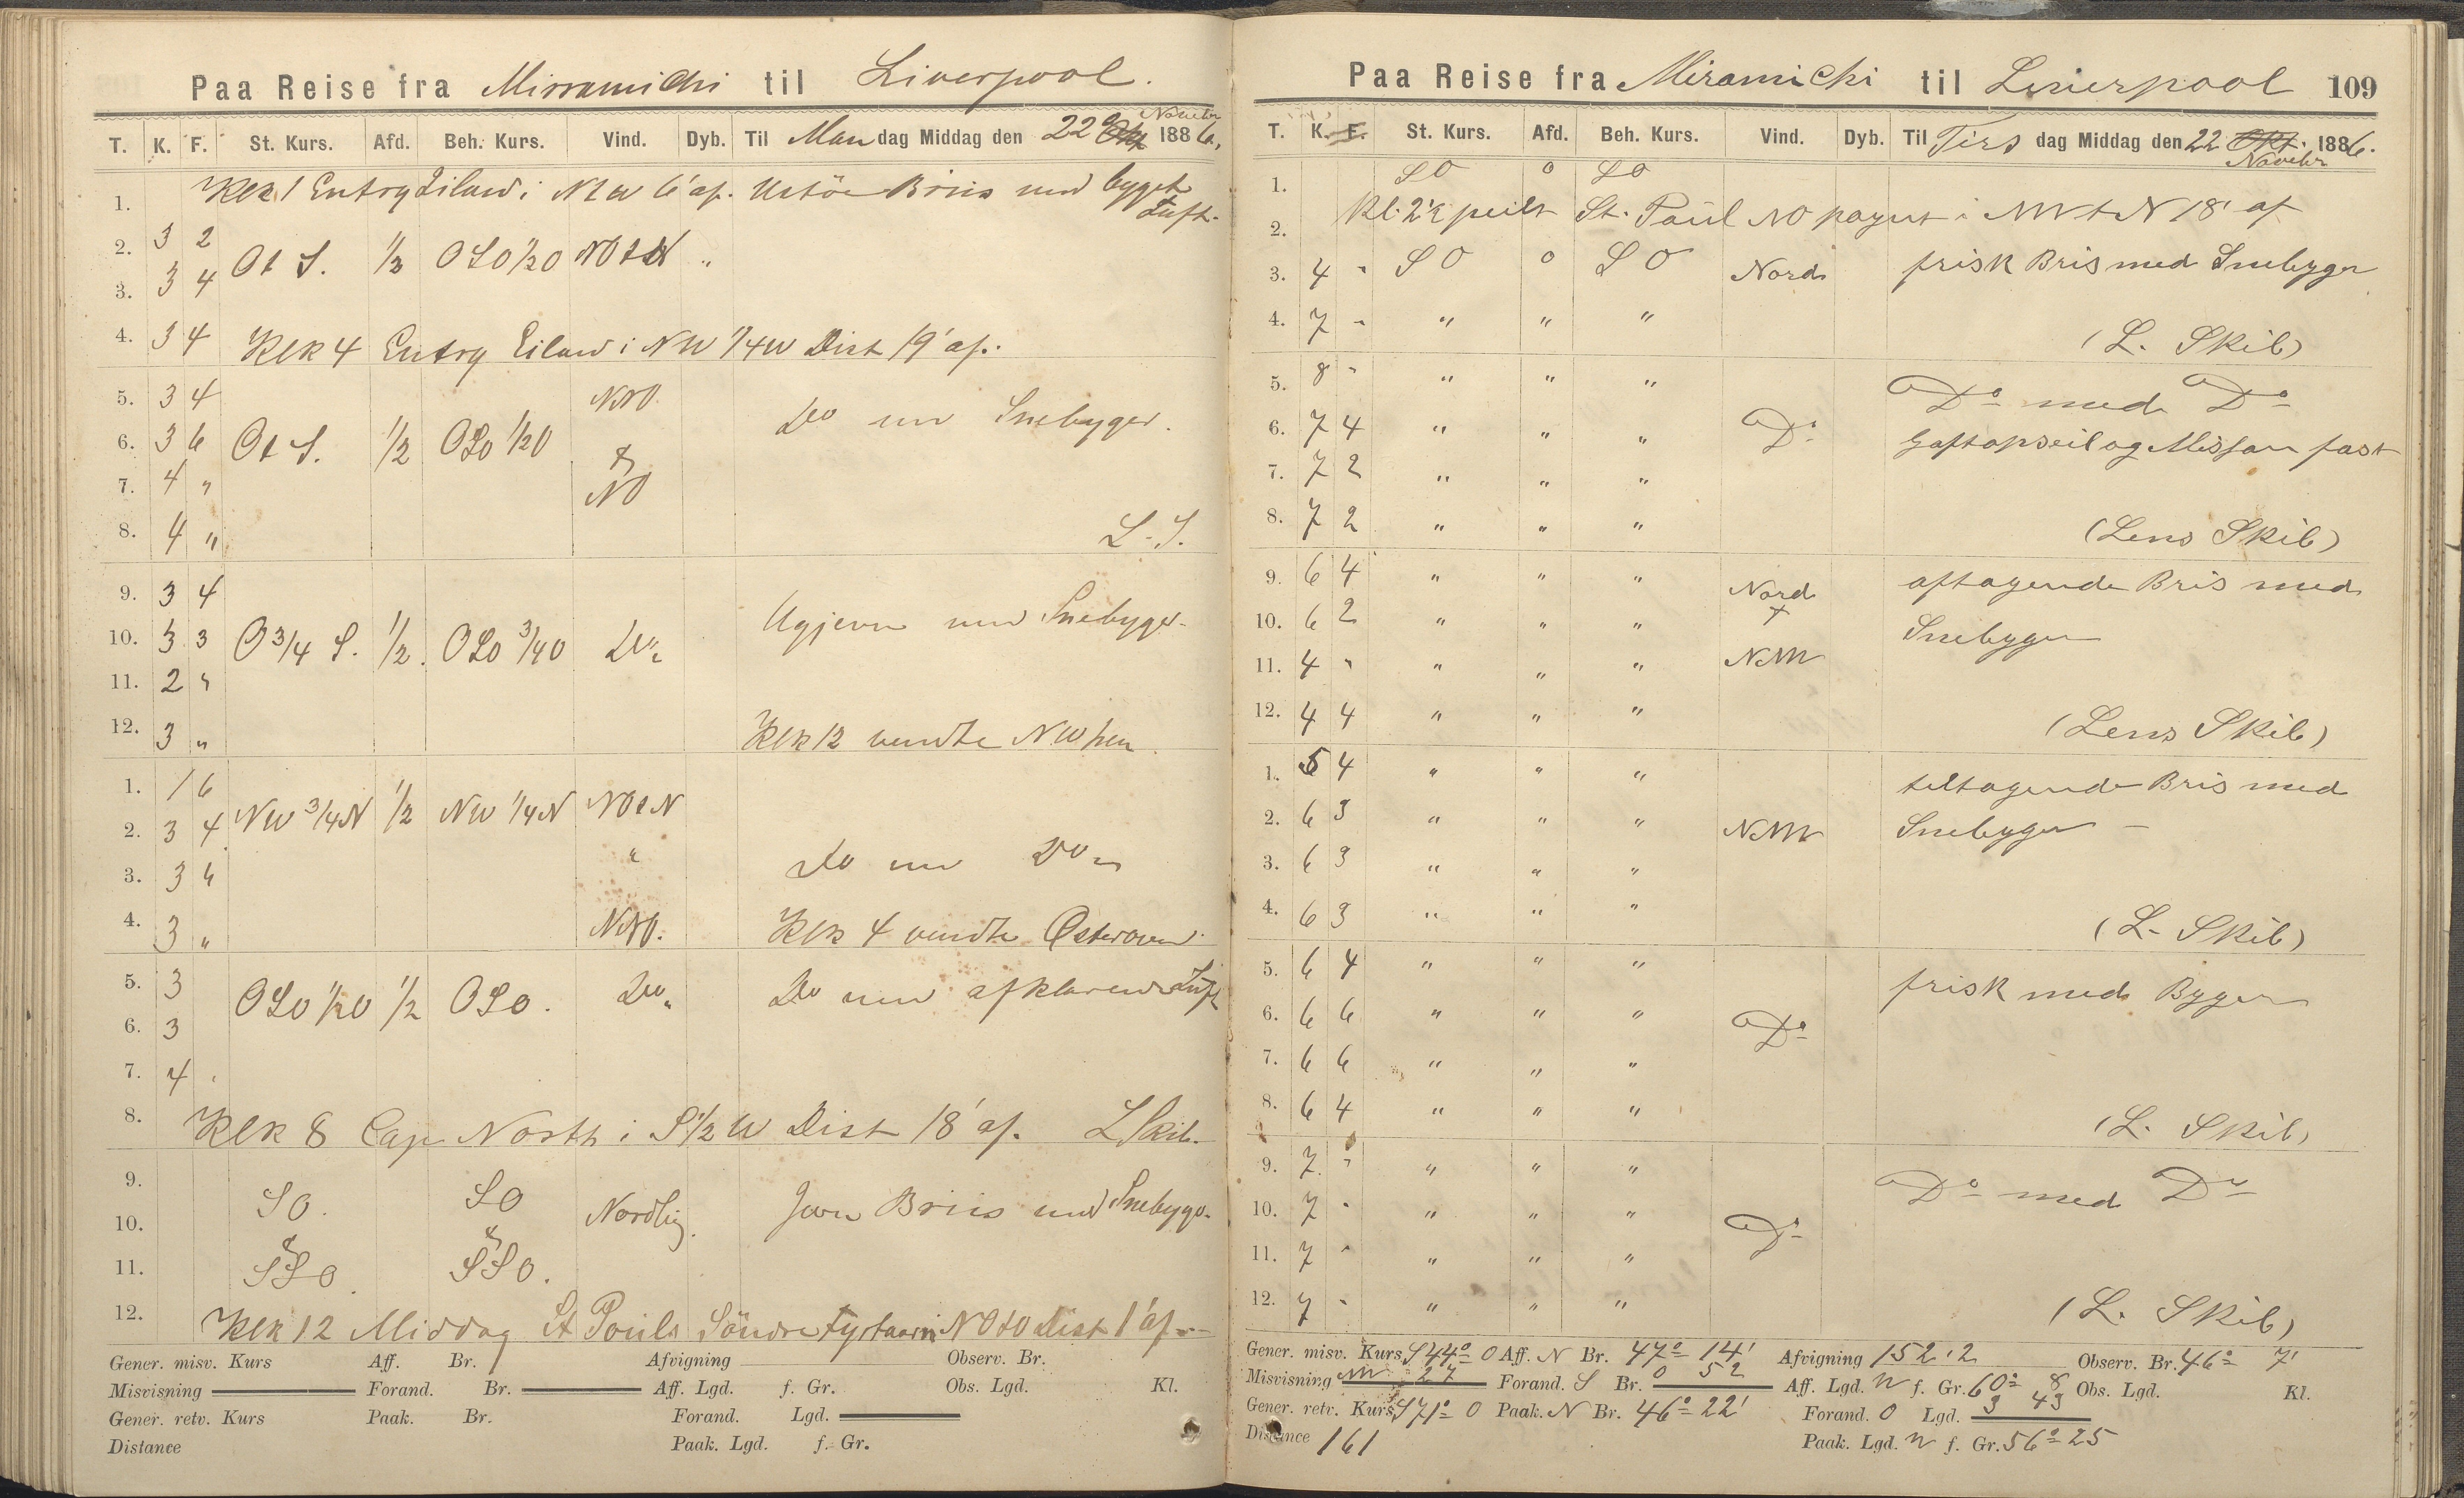 Paa Reise fra Mirramichi til Liverpool.
T. K. F. St. Kurs. Afd. Beh. Kurs. Vind. Dyb. Til Mandag Middag den 22 Novebr 1886.
1. Klk 1 Entry Eiland i NtW 6' af. Bris med byget Luft.
2. 3 2 Ot S. 1/2 OSO 1/2 O NOtN "
3. 3 4
4. 3 4 Klk 4 Entry Eiland i NW 1/4 W Dist 19' af.
5. 3 4 NNO
6. 3 6 Ot S. 1/2 OSO 1/2 O Do med Snebyger.
7. 4 " NO
8. 4 " L. S.
9. 3 4
10. 3 3 O 3/4 S. 1/2. OSO 3/4 O Do Ujevn med Snebyger
11. 2 "
12. 3 " Klk 12 vendte NW hen.
1. 1 6
2. 3 4 NW 3/4 N 1/2 NW 1/4 N NOtN
3. 3 6 " Do med Do
4. 3 " NNO. Klk 4 vendte Osterover.
5. 3 OSO 1/2 O 1/2 OSO. Do Do med afklarende Luft
6. 3
7. 4
8. Klk 8 Cap North i S 1/2 W Dist 18' af. L Skib.
9. SO. SO
10. Nordlig. Jevn Briis med Snebyger
11. SSO. SSO.
12. Klk 12 Middag St Pouls Söndre Fyrtaarn i NOtO Dist 1' af
Gener. misv. Kurs Aff. Br. Afvigning Observ. Br.
Misvisning Forand. Br. Aff. Lgd. f. Gr. Obs. Lgd. Kl.
Gener. retv. Kurs Paak. Br. Forand. Lgd.
Distance Paak. Lgd. f. Gr.
Paa Reise fra Miramichi til Liverpool 109
T. K. F. St. Kurs. Afd. Beh. Kurs. Vind. Dyb. Til Tirsdag Middag den 22 Okt. 1886.
Novebr
1. SO 0 SO
2. Kl. 2 peilt St. Paul NO i NWtN 18' af
3. 4 " SO 0 SO Nord frisk Bris med Snebyger
4. 7 " " " " (L. Skib)
5. 8 " " " " Do med Do
6. 7 4 " " " Do Gaftopseil og Missan fast
7. 7 2 " " "
8. 7 2 " " " (Lens Skib)
9. 6 4 " " " Nord aftagende Bris med
10. 6 2 " " " t Snebyger
11. 4 " " " " NNW
12. 4 4 " " " (Lens Skib)
1. 5 4 " " " tiltagende Bris med
2. 6 3 " " " NNW Snebyger
3. 6 3 " " "
4. 6 3 " " " (L. Skib)
5. 6 4 " " " frisk med Byger
6. 6 6 " " " Do
7. 6 6 " " "
8. 6 4 " " " (L. Skib)
9. 7 " " " " Do med Do
10. 7 " " " " Do
11. 7 " " " "
12. 7 " " " " (L. Skib)
Gener. misv. Kurs S 44° O Aff. N Br. 47° 14' Afvigning 152.2 Observ. Br. 46° 7'
Misvisning W 27 Forand. S Br. 0 52 Aff. Lgd. W f. Gr. 60° 8 Obs. Lgd. Kl.
Gener. retv. Kurs S 71° O Paak. N Br. 46° 22' Forand. O Lgd. 3 43
Distance 161 Paak. Lgd. W f. Gr. 56° 25